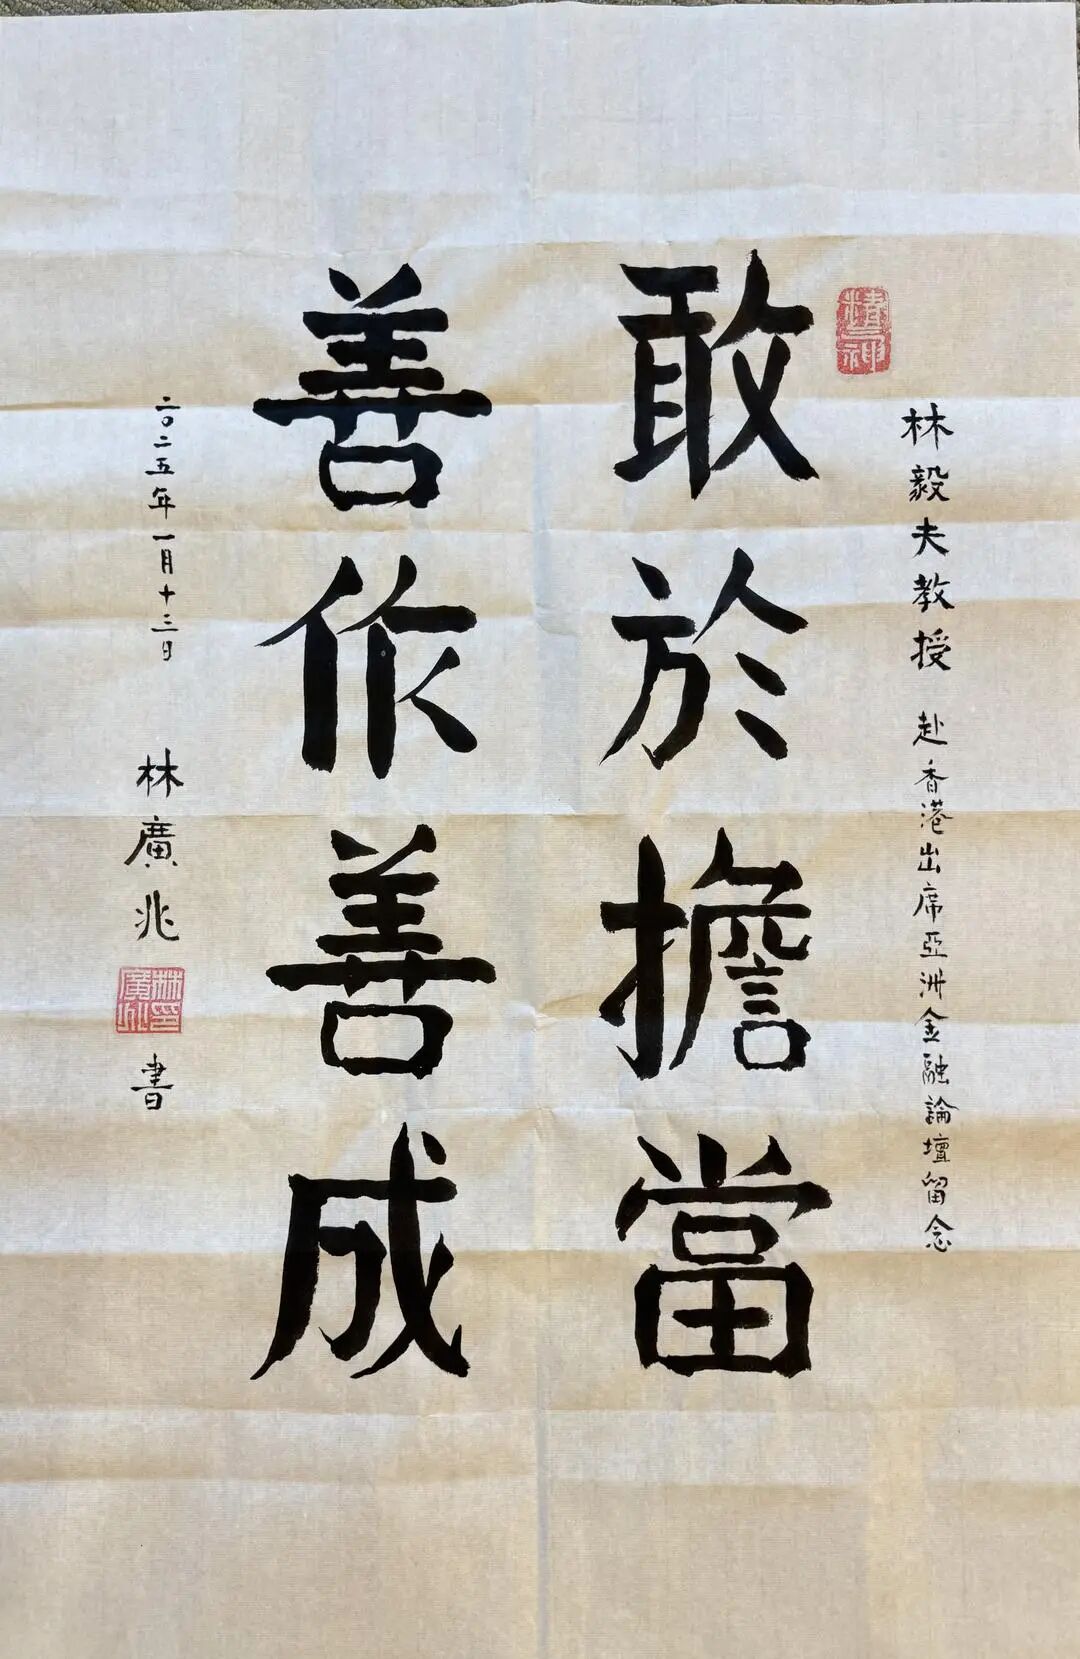 林毅夫教授 赴香港出席亞洲金融論壇留念
敢於擔當
善作善成
二〇二五年一月十三日
林廣兆
林廣兆印
書